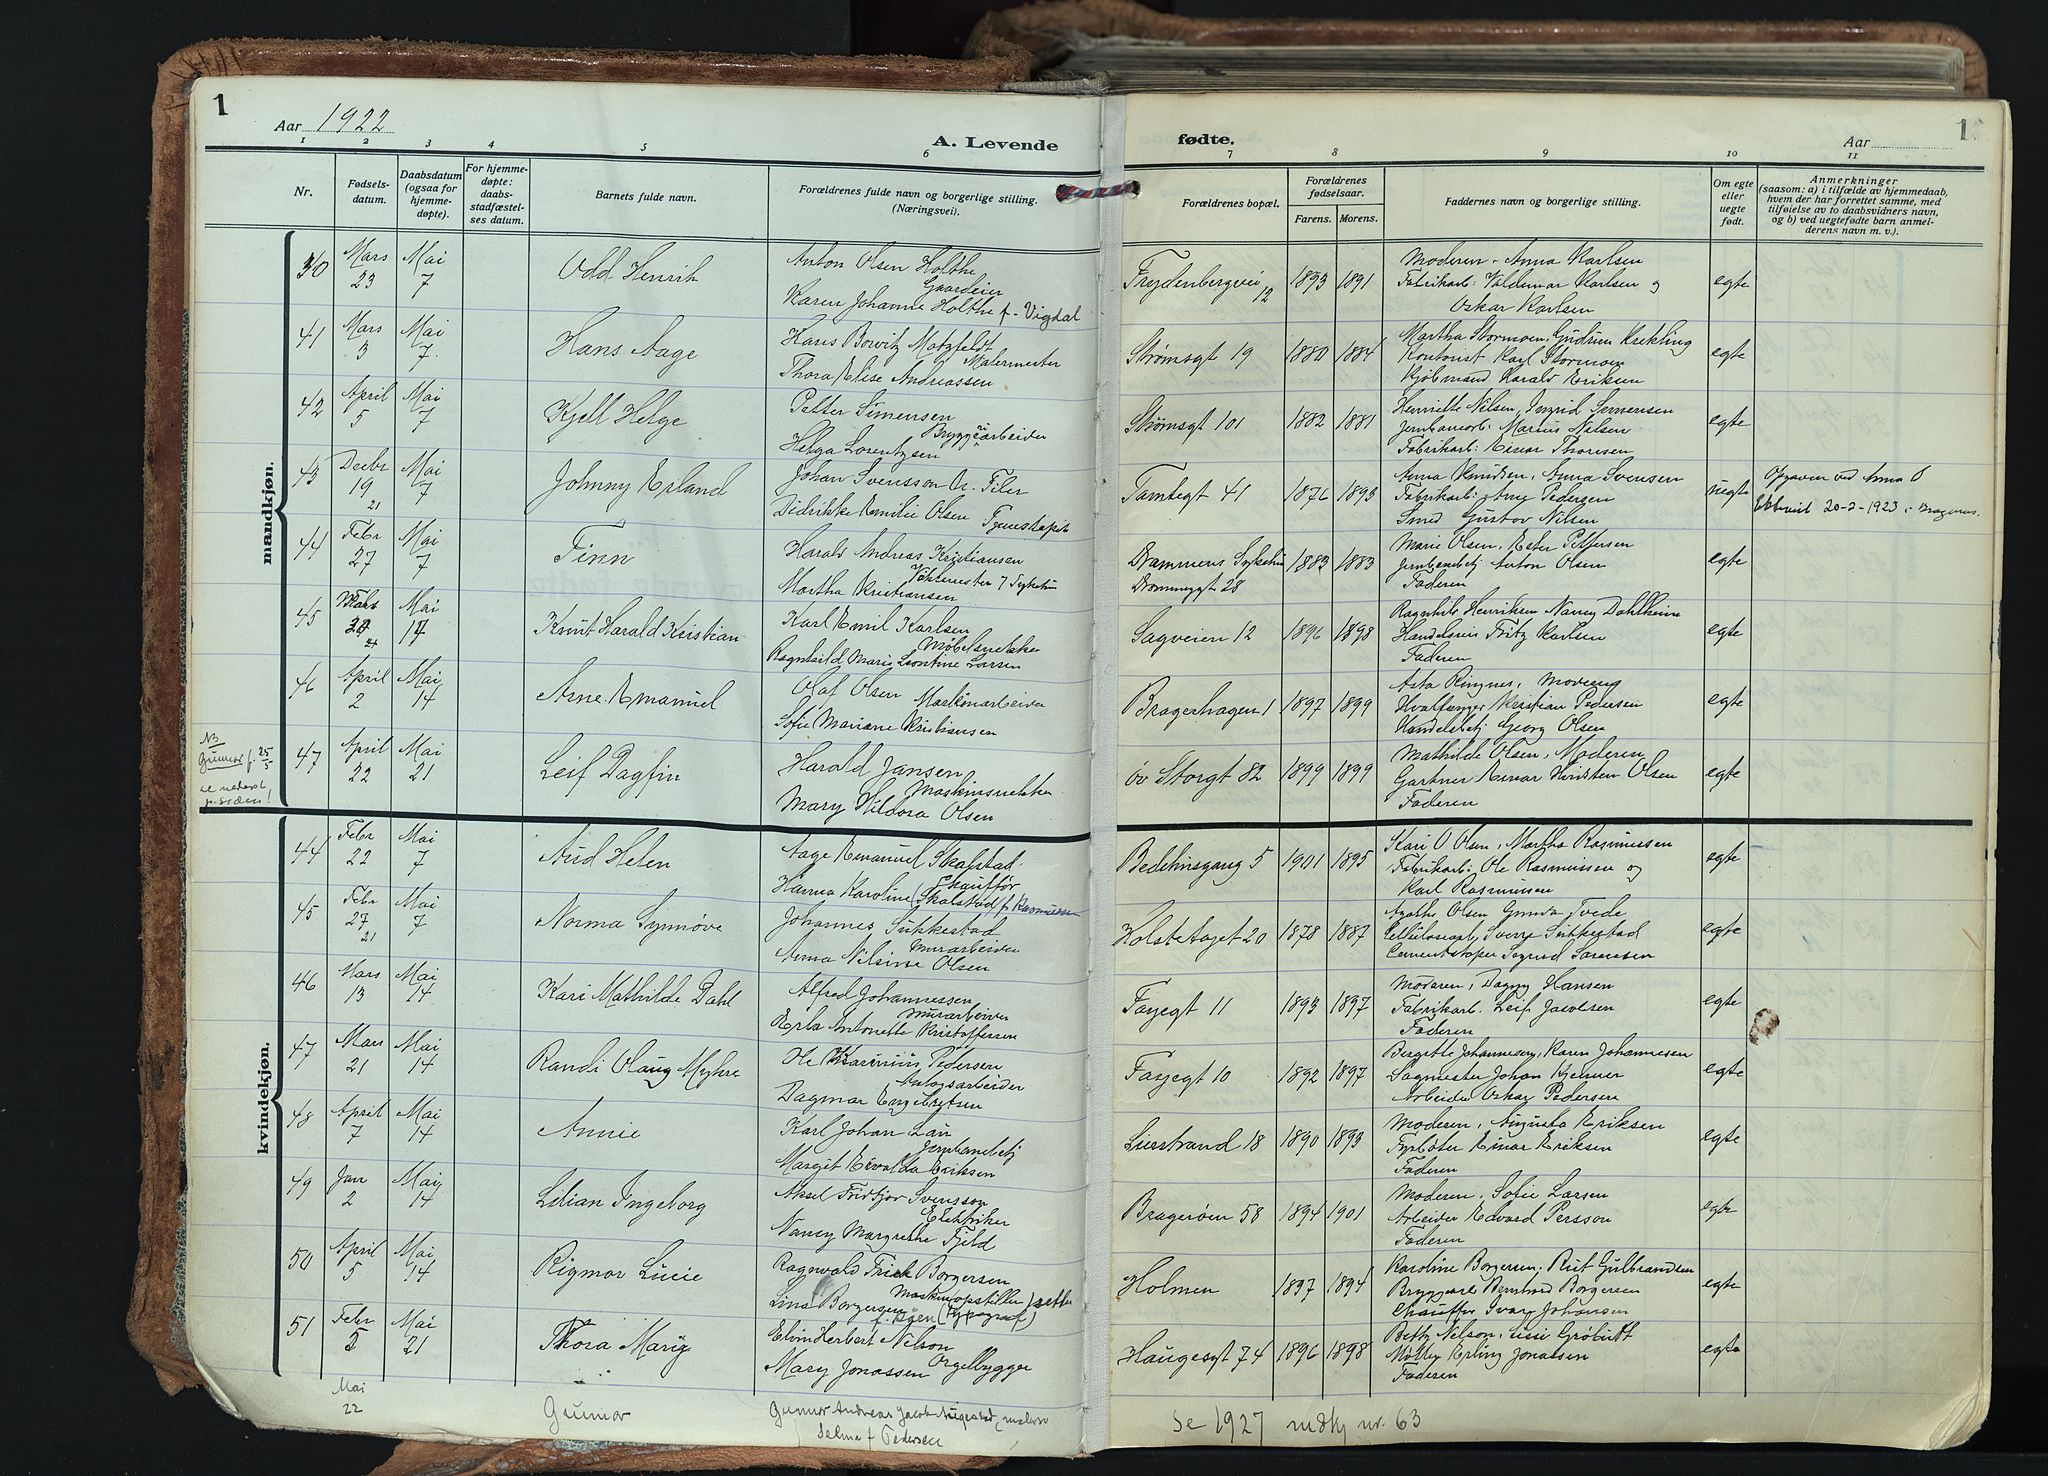 1
Aar 1922
A. Levende
1 2 3 4 5 6
Nr.
Fødsels-
datum.
Daabsdatum
(ogsaa for
hjemme-
døpte).
For hjemme-
døpte:
daabs-
stadfæstel-
ses datum.
Barnets fulde navn.
Forældrenes fulde navn og borgerlige stilling.
(Næringsvei).
mandkjøn.
Mars Mai Anton Olsen Holthe
23 7 Odd Henrik Gaardeier
Karen Johanne Holthe f. Vigdal
41 Mars Mai Hans Aage Hans Bowitz Motzfeldt
3 7 Malermester
Thora Elise Andreassen
42 April Mai Kjell Helge Petter Simensen
5 7 Bryggeriarbeider
Helga Lorentzen
43 Decbr Mai Johnny Erland Johan Svensson Filer
19 7
21 Didrikke Emilie Olsen
44 Febr Mai Finn Harald Andreas Kristiansen
27 7
Martha Kristiansen
45 Mai Knut Harald Kristian Karl Emil Karlsen
14 Møbelsnekker
Ragnhild Marie Leontine Larsen
46 April Mai Arne Emanuel Olaf Olsen Maskinarbeider
2 14
Sofie Mariane Kristiansen
NB
Gunnar f. 25/5
se nederst
p. siden!
47 April Mai Leif Dagfin Harald Jansen
22 21 Maskinsnekker
Mary Hildora Olsen
kvindekjøn.
44 Febr Mai Aud Helen Aage Emanuel Skalstad
22 7 Chauffør
Hanna Karoline (Skalstad) f. Rasmussen
45 Febr Mai Norma Synnøve Johannes Sukkestad
27 7 Murarbeider
21 Anna Nilsine Olsen
46 Mars Mai Kari Mathilde Dahl Alfred Johannessen
13 14 Murarbeider
Erla Antonette Kristoffersen
47 Mars Mai Randi Olaug Myhre Ole Pedersen
21 14
Dagmar Engebretsen
48 April Mai Annie Karl Johan Lau
7 14 Jernbanebetj
Margit Evalda Eriksen
49 Jan Mai Lilian Ingeborg Aksel Fridtjor Svensson
2 14 Elektriker
Nancy Margrethe Fjeld
50 April Mai Rigmor Lucie Ragnvald Borgersen
5 14 Maskinopstiller) sætter
Lina Borgersen (Typograf)
51 Febr Mai Thora Marie Elvin Herbert Nilson
5 21 Orgelbygger
Mary Jonassen
Mai
22 Gunnar Gunnar Andreas Jacob Augestad, maler
Selma f Pedersen
fødte.
1
Aar
7 8 9 10 11
Forældrenes bopæl.
Forældrenes
fødselsaar.
Farens. Morens.
Faddernes navn og borgerlige stilling.
Om egte
eller
uegte
født.
Anmerkninger
(saasom: a) i tilfælde av hjemmedaab,
hvem der har forrettet samme, med
tilføielse av to daabsvidners navn,
og b) ved uegtefødte barn anmel-
derens navn m. v.).
Moderen. Anna Karlsen
Frydenbergvei 12 1893 1891 Fabrikarb: Valdemar Karlsen og egte
Oskar Karlsen
Martha Stormoen, Gudrun Krekling
Strømsgt 19 1880 1884 Kontorist Karl Stormoen egte
Kjøbmand Harald Eriksen
Henriette Nilsen, Ingrid Simensen
Strømsgt 101 1882 1881 Jernbanearb: Marius Nilsen egte
Fabrikarb: Einar Thoresen
Anna Knudsen, Anna Svensen
Tomtegt 41 1876 1893 Fabrikarb: Arne Pedersen uegte
Smed Gustav Nilsen
20-2-1923 i Bragernes.
Marie Olsen, Ester Pettersen
Drammens Sykehus 1883 1883 Jernbanebetj Anton Olsen egte
Drammegt 28 Faderen
Ragnhild Henriksen Nancy Dahlheim
Sagveien 12 1896 1898 Handelsreis Fritz Karlsen egte
Faderen
Asta Ringnes, Moderen
Bragerhagen 1 1897 1899 Hvalfanger Kristian Pedersen egte
Handelsbetj Georg Olsen
Mathilde Olsen, Moderen
øv Storgt 82 1899 1899 Gartner Einar Olsen egte
Faderen
Kari O Olsen, Martha Rasmussen
5 1901 1895 Fabrikarb: Ole Rasmussen og egte
Karl Rasmussen
Agathe Olsen Gunda Tvede
20 1878 1887 Cellulosearb. Sverre Sukkestad egte
Cementstøper Sigurd Sørensen
Moderen, Dagny Hansen
Fayegt 11 1893 1897 Fabrikarb. Leif Jacobsen egte
Faderen
Bergitte Johannesen, Karen Johannesen
Fayegt 10 1892 1897 Sagmester Johan egte
Arbeider Oskar Pedersen
Moderen, Augusta Eriksen
Lierstrand 18 1890 1893 Fyrbøter Einar Eriksen egte
Faderen
Moderen, Sofie Larsen
Bragerøen 58 1894 1901 Arbeider Edvard Persson egte
Faderen
Karoline Borgersen, Rut Gulbrandsen
Holmen 1897 1894 Bryggearb Bernhard Borgersen egte
Chauffør Svarg Johansen
Betty Nilson, Lissi
Haugesgt 74 1896 1898 Erling Jonassen egte
Faderen
Se 1927 mdkj nr. 63